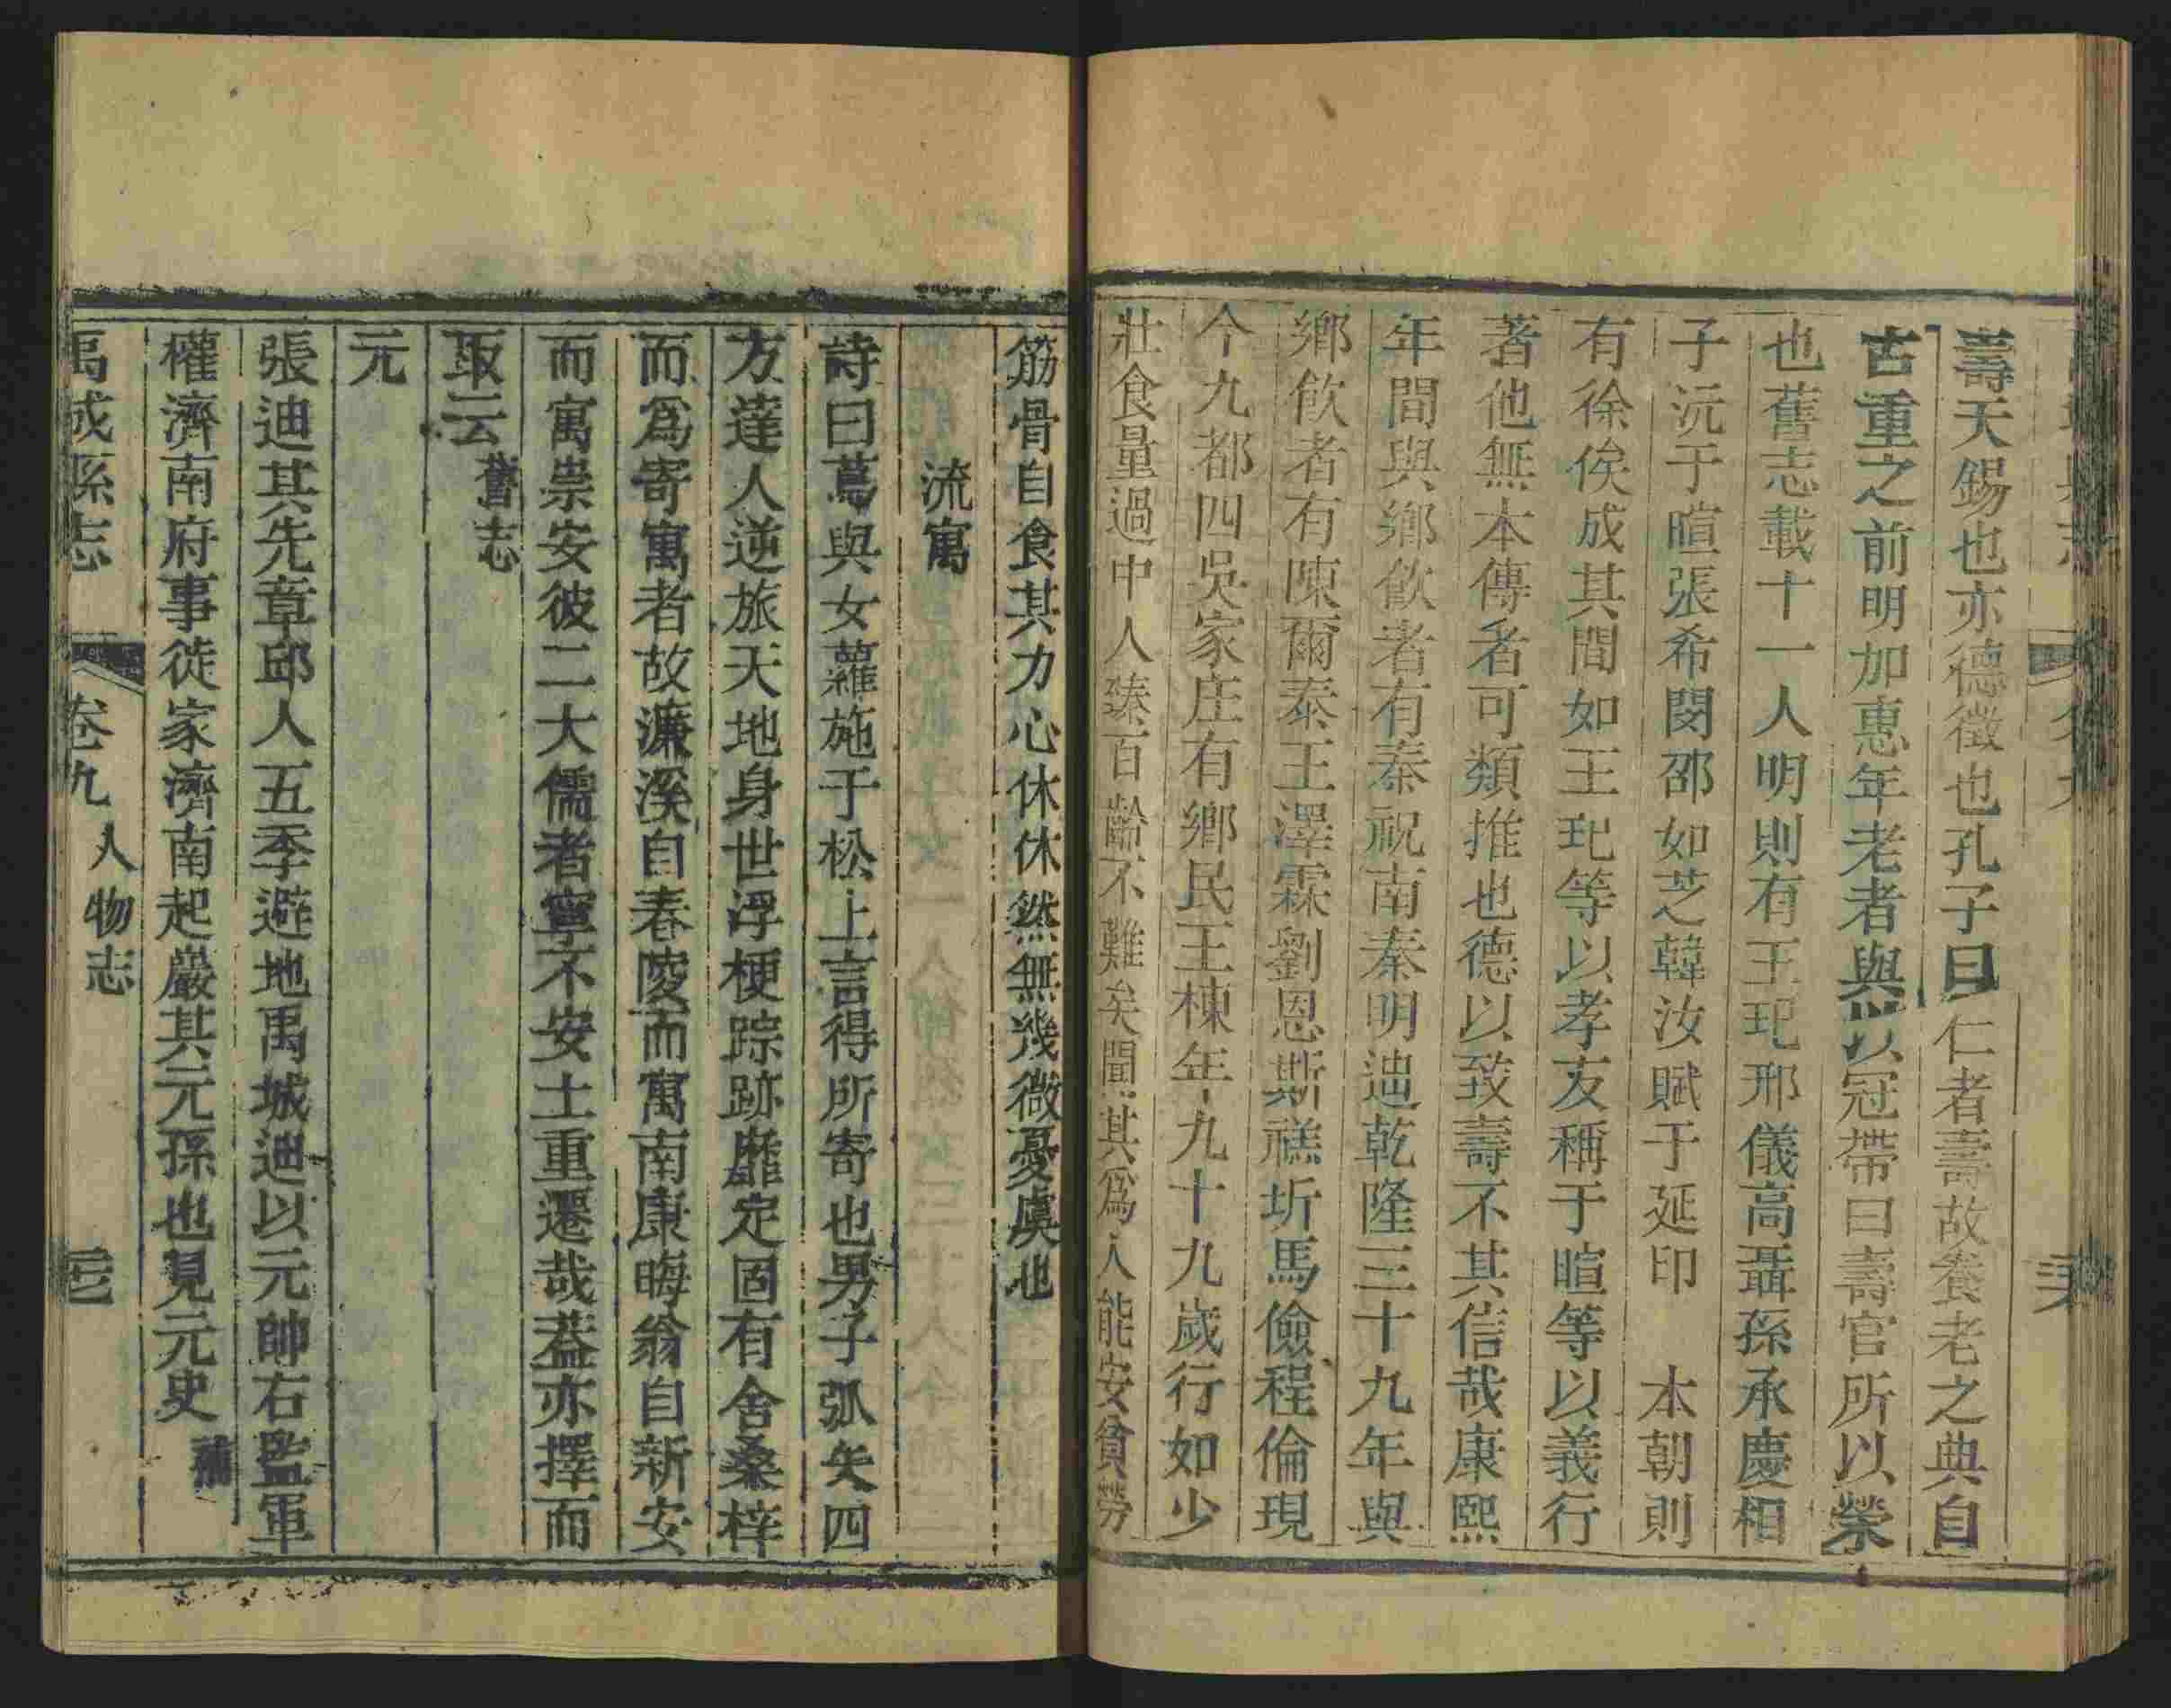 壽天錫也亦德徵也孔子曰仁者壽故養老之典自
古重之前明加惠年老者與以冠帶曰壽官所以榮
也舊志載十一人明則有王玘邢儀高聶孫承慶相
子沅于暄張希閔邵如芝韓汝賦于延印　本朝則
有徐俟成其間如王玘等以孝友稱于暄等以義行
著他無本傳者可類推也德以致壽不其信哉康熙
年間與鄉飲者有秦祝南秦明迪乾隆三十九年與
鄉飲者有陳爾泰王澤霖劉恩斯禚圻馬儉程倫現
今九都四吳家庄有鄉民王棟年九十九歲行如少
壯食量過中人臻百齡不難矣聞其爲人能安貧勞
筋骨自食其力心休休然無幾微憂虞也
流寓
詩曰蔦與女蘿施于松上言得所寄也男子弧矢四
方達人逆旅天地身世浮梗踪跡靡定固有舍桑梓
而爲寄寓者故濂溪自舂陵而寓南康晦翁自新安
而寓崇安彼二大儒者寧不安土重遷哉葢亦擇而
取云 舊志
元
張迪其先章邱人五季避地禹城迪以元帥右監軍
權濟南府事徙家濟南起嚴其元孫也見元史 補
禹城縣志　卷九　人物志